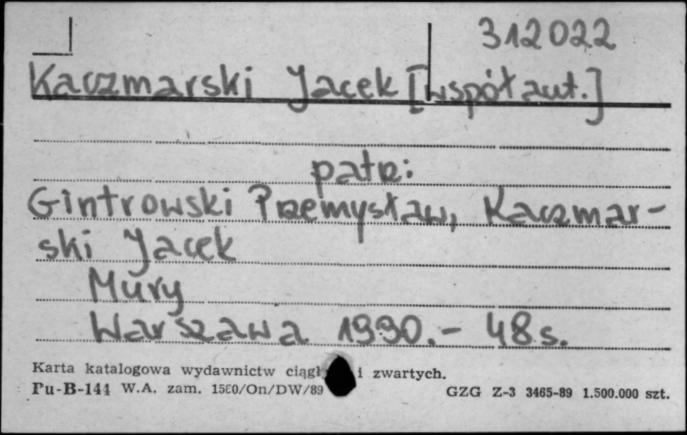 312022
Kaczmarski Jacek [współaut.]
patrz:
Gintrowski Przemysław, Kaczmar-
ski Jacek
Mury
Warszawa 1990.- 48 s.
Karta katalogowa wydawnictw i zwartych.
Pu-B-144 W.A. zam. 1580/On/DW/89 GZG Z-3 3465-89 1.500.000 szt.